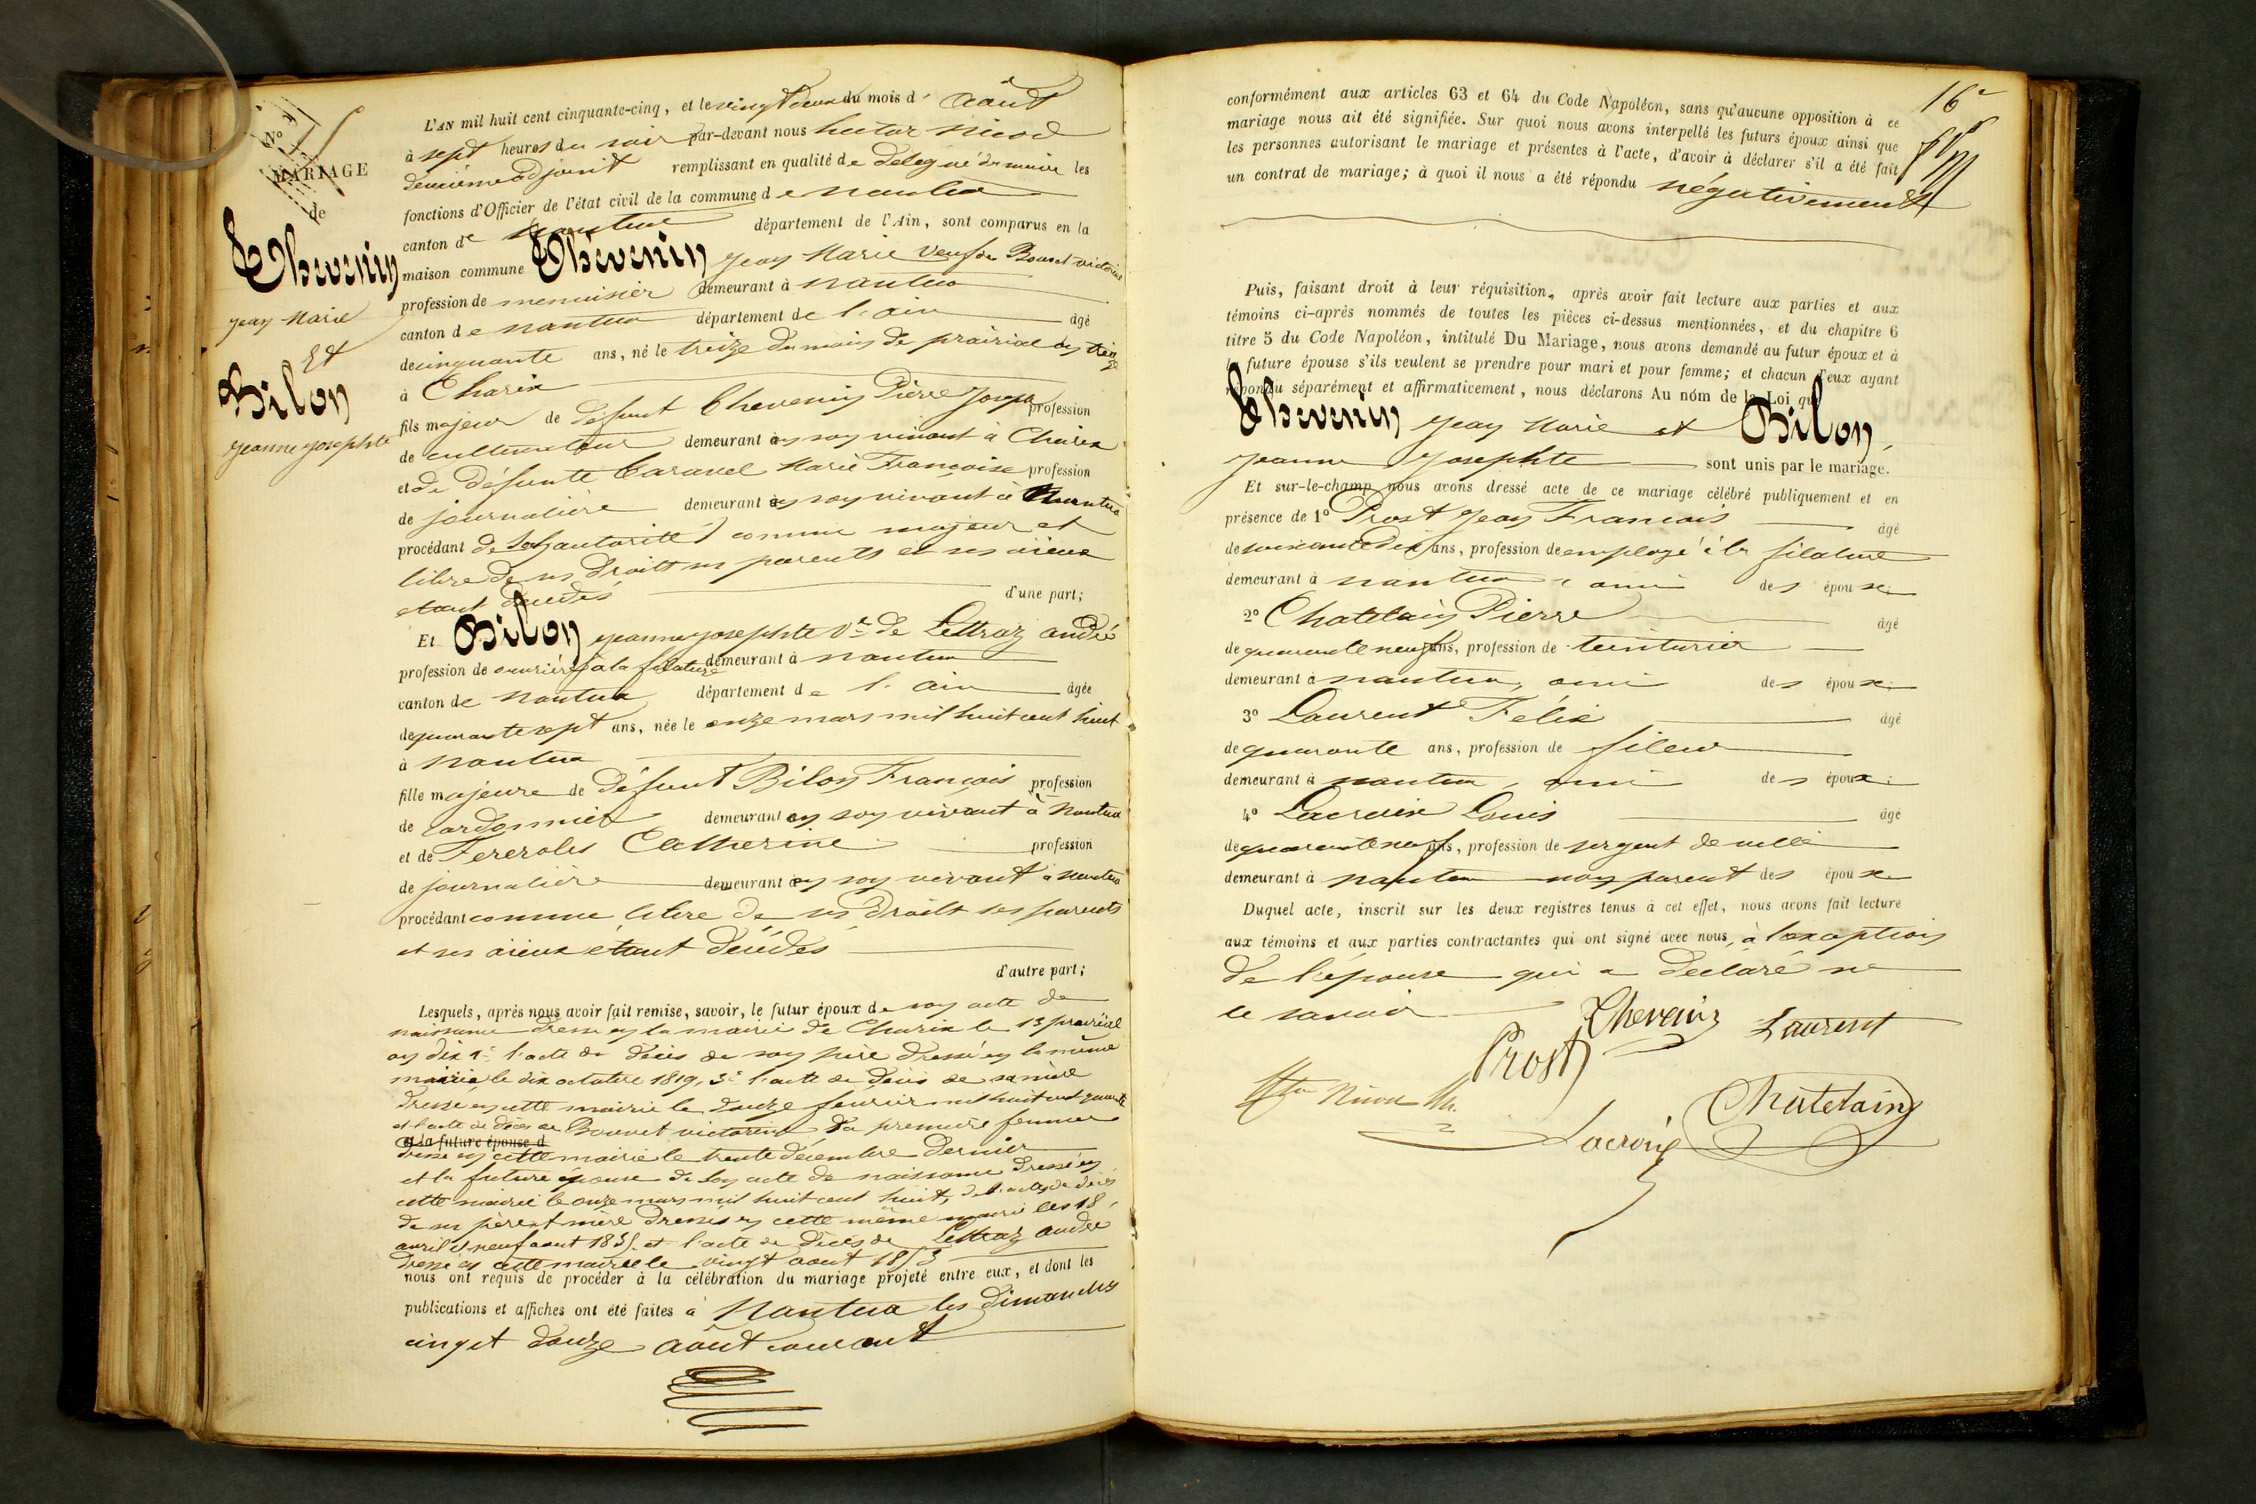 N°
MARIAGE
de
Thevenin
Jean Marie
Et
Bilon
Jeanne Josephte
L'AN mil huit cent cinquante-cinq, et le vingt deux du mois d' août
à sept heures du soir par-devant nous hector Nicod
deuxième adjoint remplissant en qualité de délégué du maire les
fonctions d'Officier de l'état civil de la commune de nantua
canton de nantua département de l'Ain, sont comparus en la
maison commune Thévenin Jean Marie veuf de Bouvet victorine
profession de menuisier demeurant à nantua
canton de nantua département de l'ain âgé
de cinquante ans, né le treize du mois de prairial an
à Charix
fils majeur de défunt Thevenin Pierre Joseph profession
de cultivateur demeurant en son vivant à Charix
et de défunte Caravel Marie Françoise profession
de journalière demeurant en son vivant à Nantua
procédant de Son autorité comme majeur et
libre de ses droits ses parents et ses aieux
étant décédés d'une part;
Et Bilon Jeanne Josephte Ve de Lettraz andré
profession de ouvrière à la filature demeurant à nantua
canton de nantua département de l'ain âgée
de quarante sept ans, née le onze mars mil huit cent huit
à nantua
fille majeure de défunt Bilon François profession
de cordonnier demeurant en son vivant à Nantua
et de Fereroles Catherine profession
de journalière demeurant en son vivant à nantua
procédant comme libre de ses droits ses parents
et ses aieux étant décédés
d'autre part;
Lesquels, après nous avoir fait remise, savoir, le futur époux de son acte de
naissance dressé en la mairie de Charix le 13 prairial
an dix l'acte de décès de son père dressé en la même
mairie le dix octobre 1819, 3° l'acte de décès de sa mère
dressé en cette mairie le douze fevrier mil huit cent quarante
et l'acte de décès de Bouvet victorine sa première femme
et la future épouse d
dressé en cette mairie le trente décembre dernier
et la future épouse de Son acte de naissance dressé en
cette mairie le onze mars mil huit cent huit, de l'acte de décès
de ses père et mère dressés en cette même mairie les 18
avril et neuf aout 1835 et l'acte de décès de Lettraz andré
dressé en cette mairie le vingt aout 1853
nous ont requis de procéder à la célébration du mariage projeté entre eux, et dont les
publications et affiches ont été faites à Nantua les dimanches
cinq et douze août courant
16
conformément aux articles 63 et 64 du Code Napoléon, sans qu'aucune opposition à ce
mariage nous ait été signifiée. Sur quoi nous avons interpellé les futurs époux ainsi que
les personnes autorisant le mariage et présentes à l'acte, d'avoir à déclarer s'il a été fait
un contrat de mariage; à quoi il nous a été répondu négativement
Puis, faisant droit à leur réquisition, après avoir fait lecture aux parties et aux
témoins ci-après nommés de toutes les pièces ci-dessus mentionnées, et du chapitre 6
titre 5 du Code Napoléon, intitulé Du Mariage, nous avons demandé au futur époux et à
la future épouse s'ils veulent se prendre pour mari et pour femme; et chacun d'eux ayant
répondu séparément et affirmativement, nous déclarons Au nom de la Loi que
Thevenin Jean Marie et Bilon,
Jeanne Josephte sont unis par le mariage.
Et sur-le-champ nous avons dressé acte de ce mariage célébré publiquement et en
présence de 1° Prost Jean François âgé
de soixante dix ans, profession de employé à la filature
demeurant à nantua, ami des époux
2° Chatelain Pierre âgé
de quarante neuf ans, profession de teinturier
demeurant à nantua, ami des époux
3° Laurent Félix âgé
de quarante ans, profession de fileur
demeurant à nantua, ami des époux
4° Lacroix Louis âgé
de quarante neuf ans, profession de sergent de ville
demeurant à nantua non parent des époux
Duquel acte, inscrit sur les deux registres tenus à cet effet, nous avons fait lecture
aux témoins et aux parties contractantes qui ont signé avec nous, à l'exception
de l'épouse qui a déclaré ne
le savoir
Thevenin Laurent
Prost
Chatelain
Lacroix